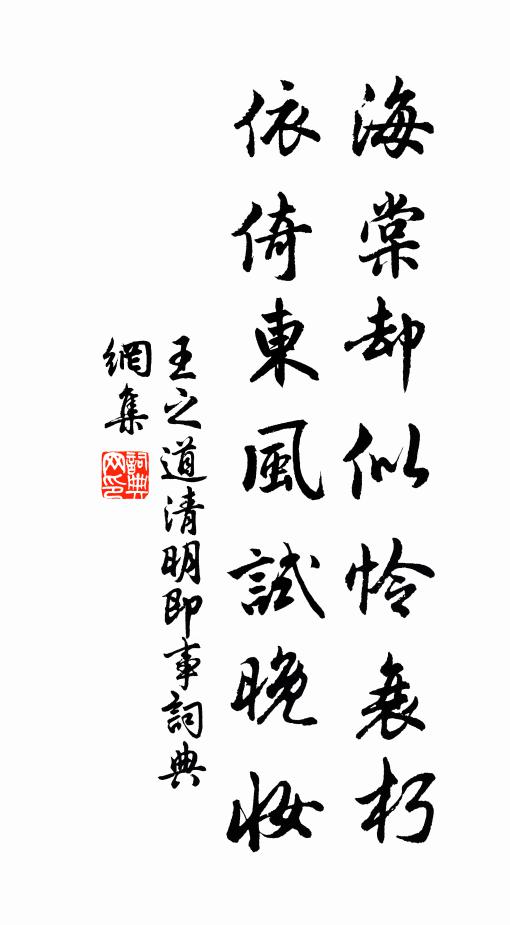 海棠却似怜衰朽
依倚東風試晚妝
王之道清明即事詞典
網集
詞典網印